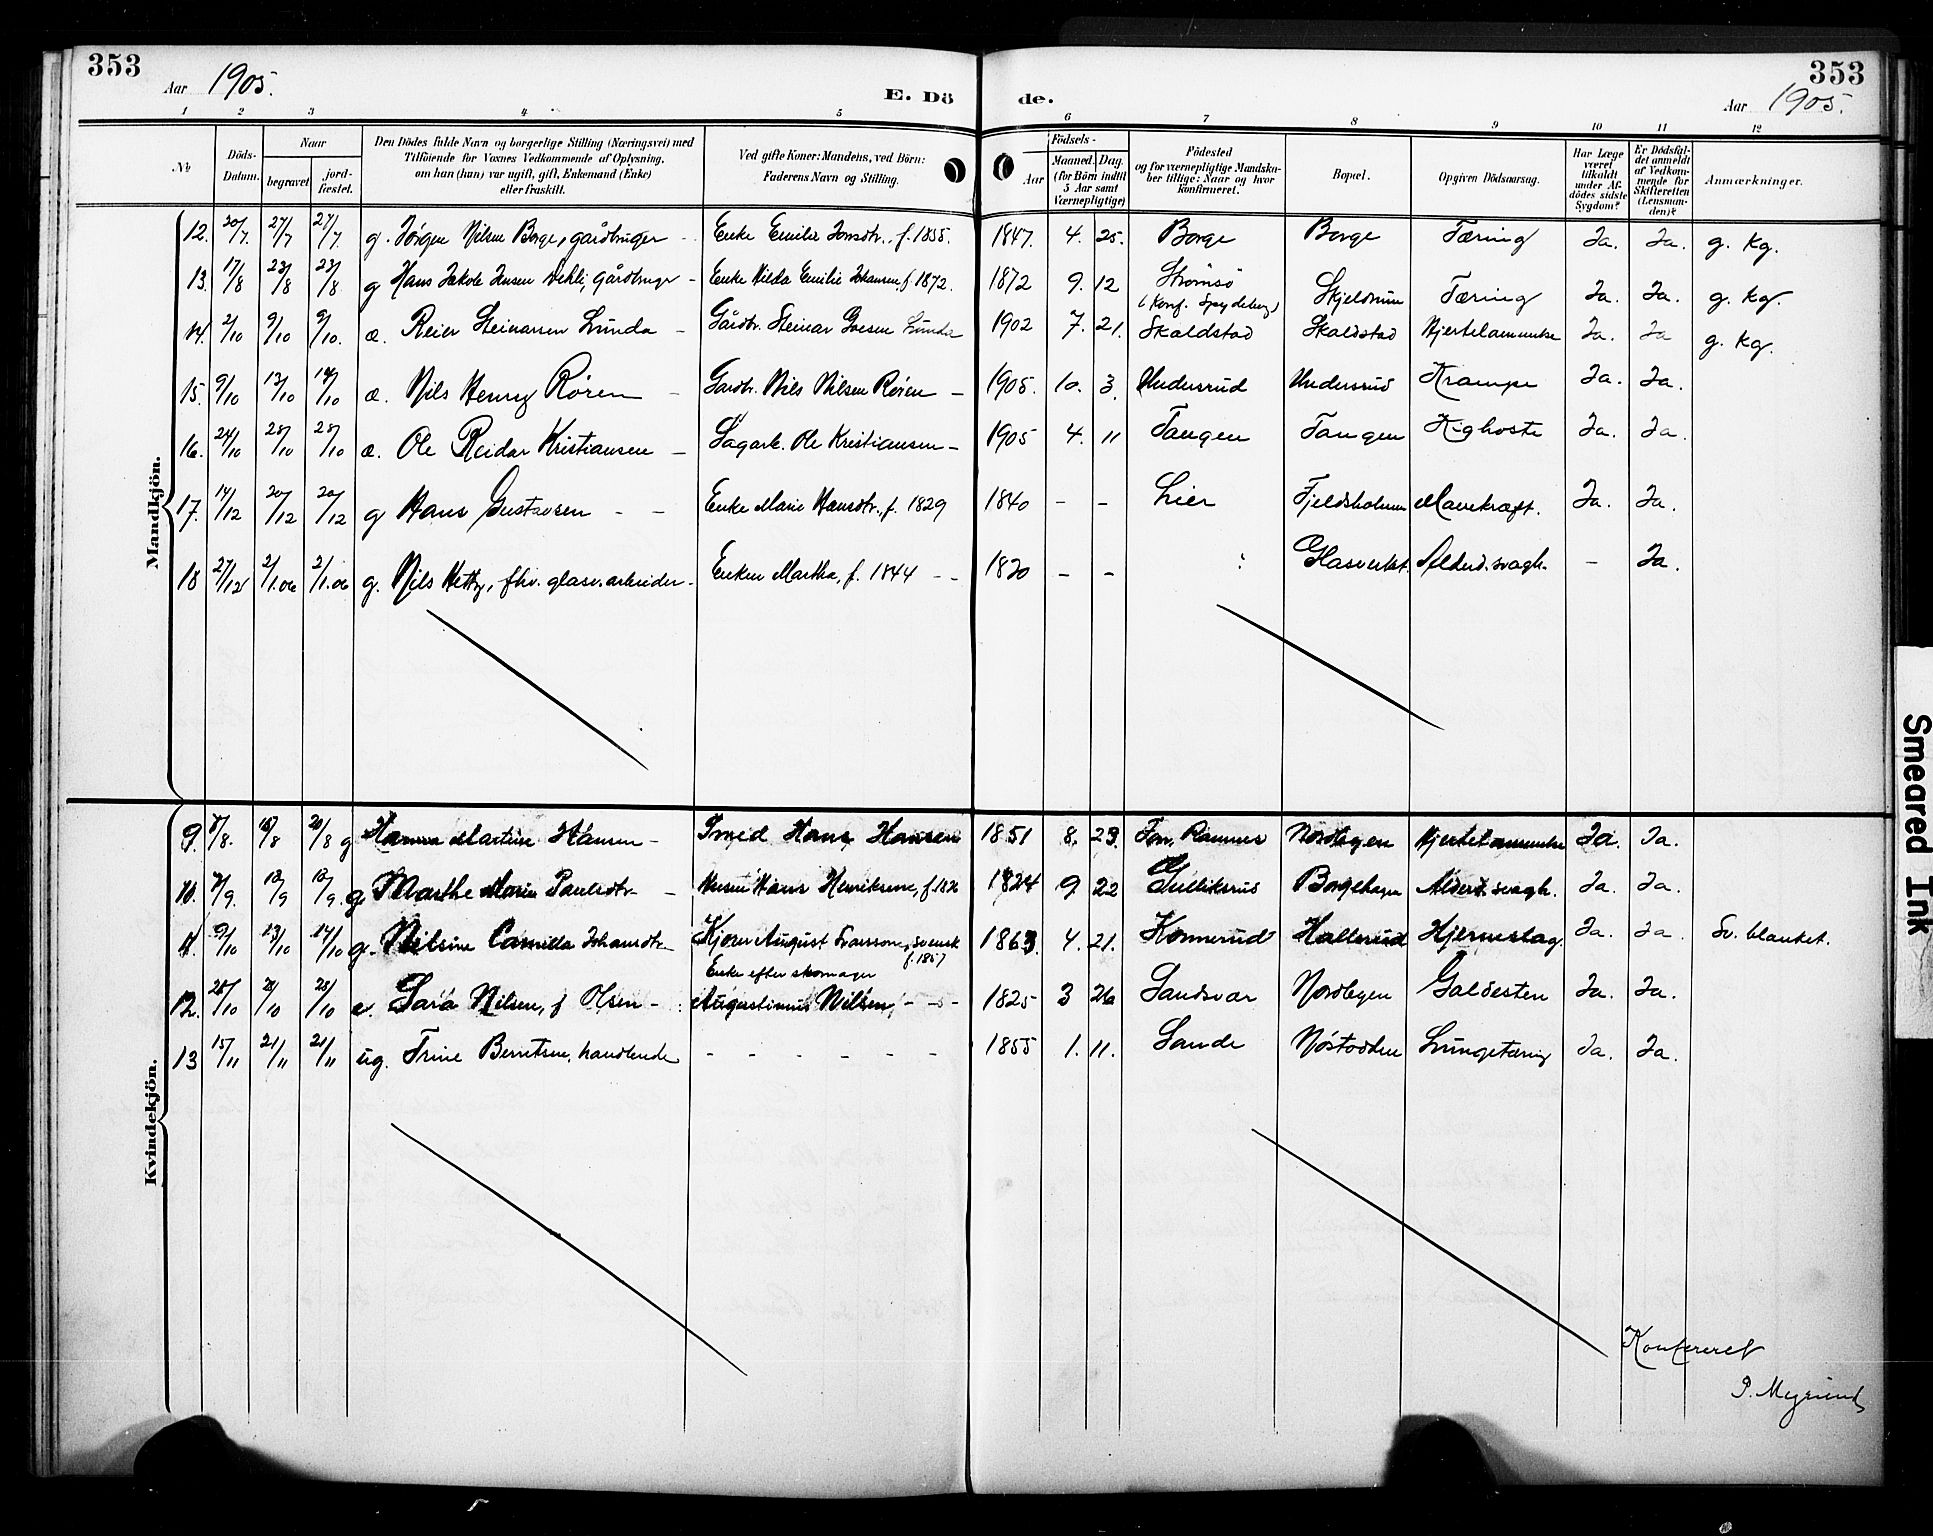 353
353
Aar 1905.
E. Dö de.
Aar 1905.
1 2 3 4 5 6 7 8 9 10 11 12
No
Döds-Datum.
Naar
begravet
jordfæstet.
Den Dödes fulde Navn og borgerlige Stilling (Næringsvei) med
Tilföiende for Voxnes Vedkommende af Oplysning,
om han (hun) var ugift, gift, Enkemand (Enke)
eller fraskilt.
Ved gifte Koner: Mandens, ved Börn:
Faderens Navn og Stilling.
Födsels-
Aar
Maaned. Dag.
(for Börn indtil
5 Aar samt
Værnepligtige)
Födested
og for værnepligtige Mandska-
ber tillige: Naar og hvor
konfirmeret.
Bopæl.
Opgiven Dödsaarsag.
Har Læge
været
tilkaldt
under Af-
dödes sidste
Sygdom?
Er Dödsfal-
det anmeldt
af Vedkom-
mende for
Skifteretten
(Lensman-
den)?
Anmærkninger.
Mandkjön.
12. 20/7 27/7 27/7. g. Jörgen Nilsen Borge, gårdbruger - Enke Emilie Jonsdtr., f. 1855. 1847. 4. 25. Borge Borge Tæring Ja. Ja. g. kg.
13. 17/8 23/8 23/8. g Hans Jakob Jensen Vehli, Gårdbruger - Enke Hilda Emilie Johansen, f. 1872. 1872 9. 12 Strömsö (Konf. Spydeberg) Skjeldrum Tæring Ja. Ja. g. kg.
14. 2/10 9/10 9/10. æ. Reier Steinarsen Lunda - Gårdbr. Steinar Lunda 1902 7. 21. Skaldstad Skaldstad Hjertelammelse Ja. Ja g. kg.
15. 9/10 13/10 14/10 æ. Nils Henry Røren - Gardbr. Nils Nilsen Røren - 1905. 10. 3. Undersrud Undersrud Krampe Ja. Ja.
16. 24/10 28/10 28/10 æ. Ole Reidar Kristiansen - Sagarb. Ole Kristiansen - 1905 4. 11 Tangen Tangen Kighoste Ja. Ja.
17. 14/12 20/12 20/12 g Hans Gustavsen - - Enke Marie Hansdtr., f. 1829 1840 - - Lier Fjeldsholmen Mavekræft. Ja. Ja.
18 27/12 2/1.06 2/1.06 g. Nils Hetty, fhv. glasv.arbeider - Enken Martha, f. 1844 - - 1830 - - : Glasverket. Alderd.svagh. - Ja.
Kvindekjön.
9. /8. /8 20/8 g Hanna Martine Hansen - Smed Hans Hansen 1851 8. 23. Ramnes Nordbyen Hjertelammelse Ja. Ja.
10. /9. 12/9 12/9. g. Marthe Maria Paulsdtr. - Hans Henriksen, f. 1824 9 22 Gulliksrud Borgehagen Alderd.svagh. Ja. Ja.
11. 9/10 13/10 14/10 g. Nilsine Camilla Johansdtr. - August Svensson, svensk f. 1857 1863. 4. 21. Konnerud Hallerud Hjerneslag. Ja. Ja. Sv. blanket.
12. 20/10 /10 25/10 e. Sara Nilsen, f Olsen - Enke efter skomager Augustinus Nilsen, - - 1825 3 26 Sandsvær Nordbyen Galdesten Ja. Ja.
13 15/11 21/11 21/11 ug. Trine Berntsen, handlende - - - - - - 1855 1. 11. Sande Nøstodden Lungetæring Ja. Ja.
Konfereret
Smeared Ink